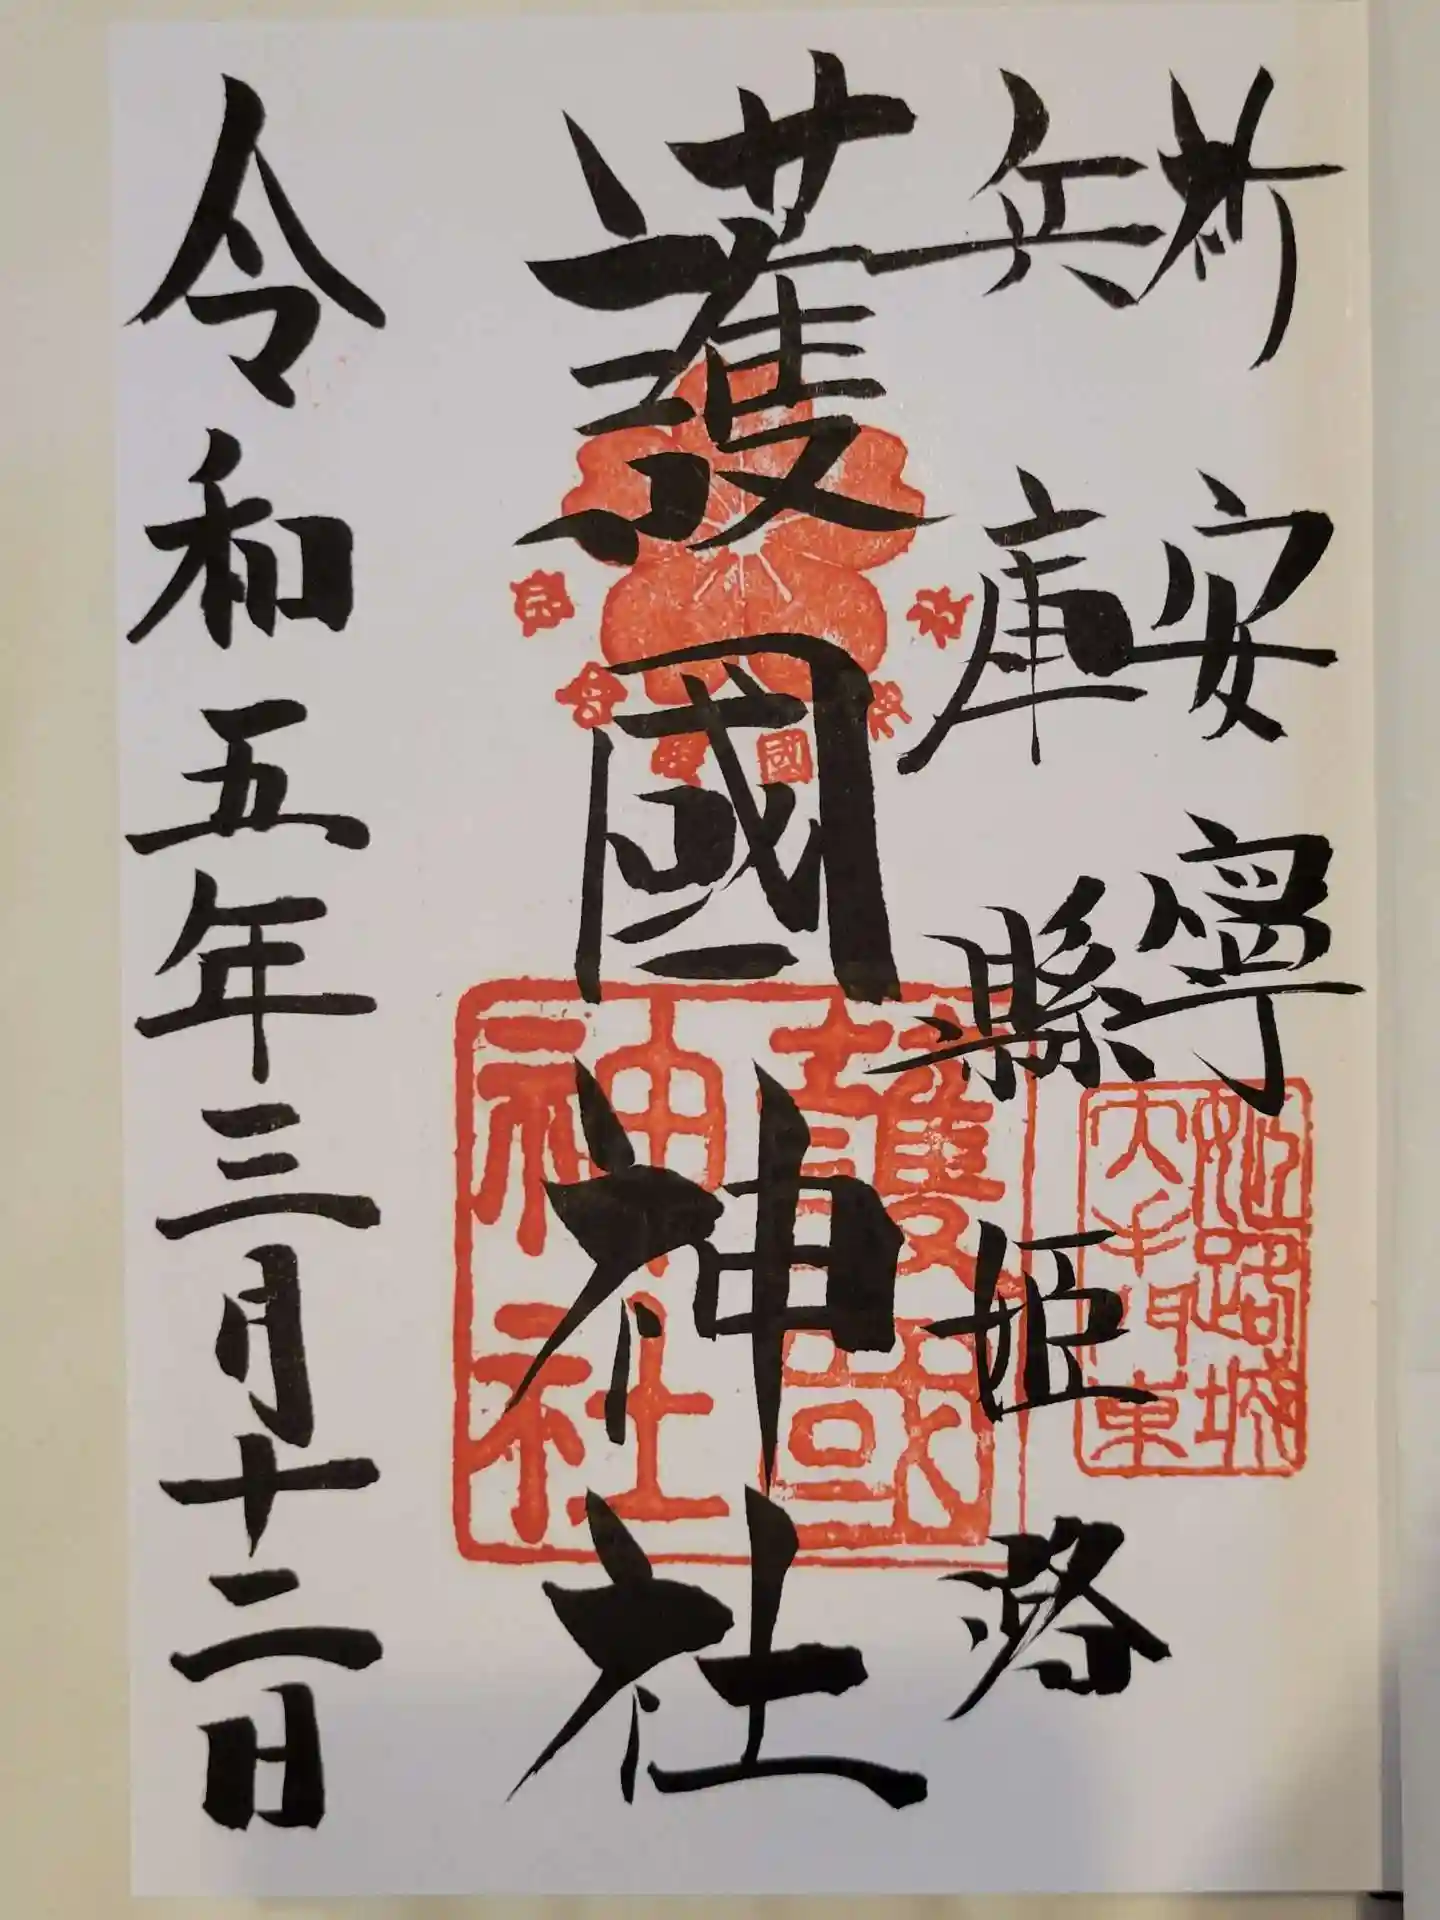 祈安寧
兵庫縣姫路
護國神社
令和五年三月十二日
護國
神社
姫路城
大手門東